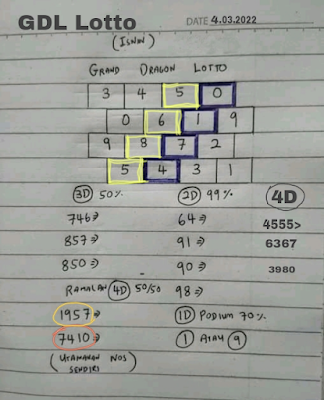 GDL Lotto
DATE 4.03.2022
(ISNIN)
GRAND DRAGON LOTTO
3 4 5 0
0 6 1 9
9 8 7 2
5 4 3 1
3D 50% 2D 99% 4D
746⇒ 64⇒ 4555>
857⇒ 91⇒ 6367
850⇒ 90⇒ 3980
RAMALAN 4D 50/50 98⇒
1957⇒ 1D PODIUM 70%
7410⇒ 1 ATAU 9
(UTAMAKAN NOS
SENDIRI)